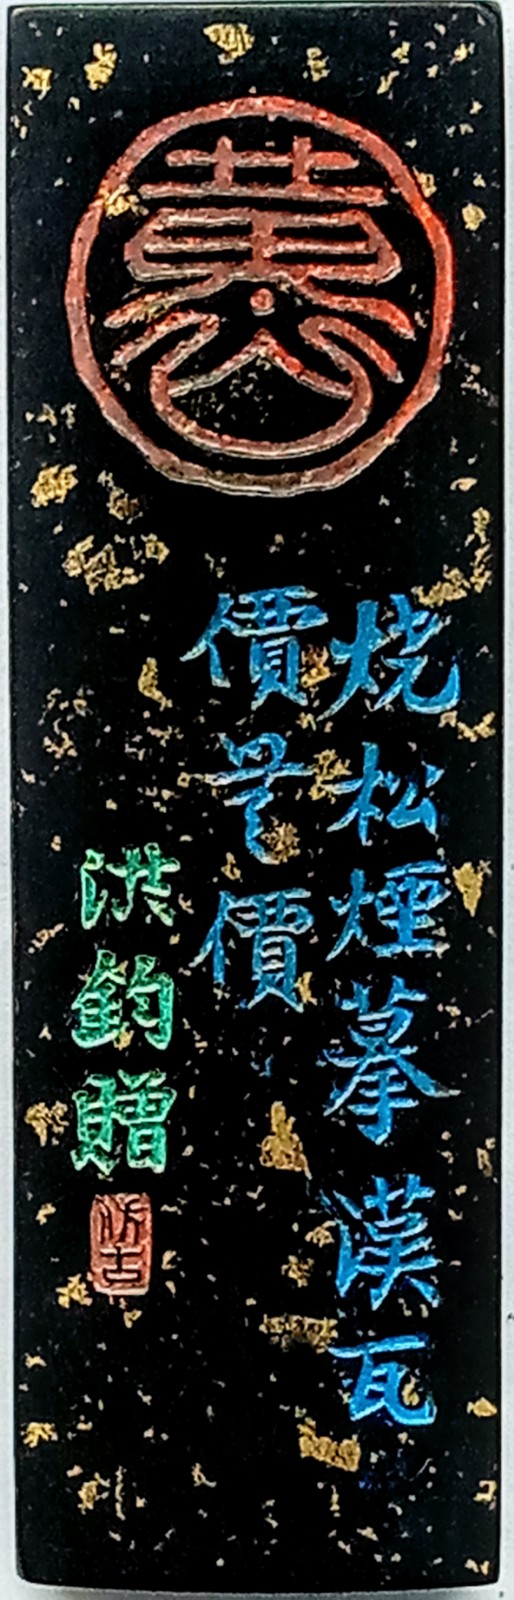 黃山
烧松煙摹漢瓦
價無價
洪鈞贈
仿古